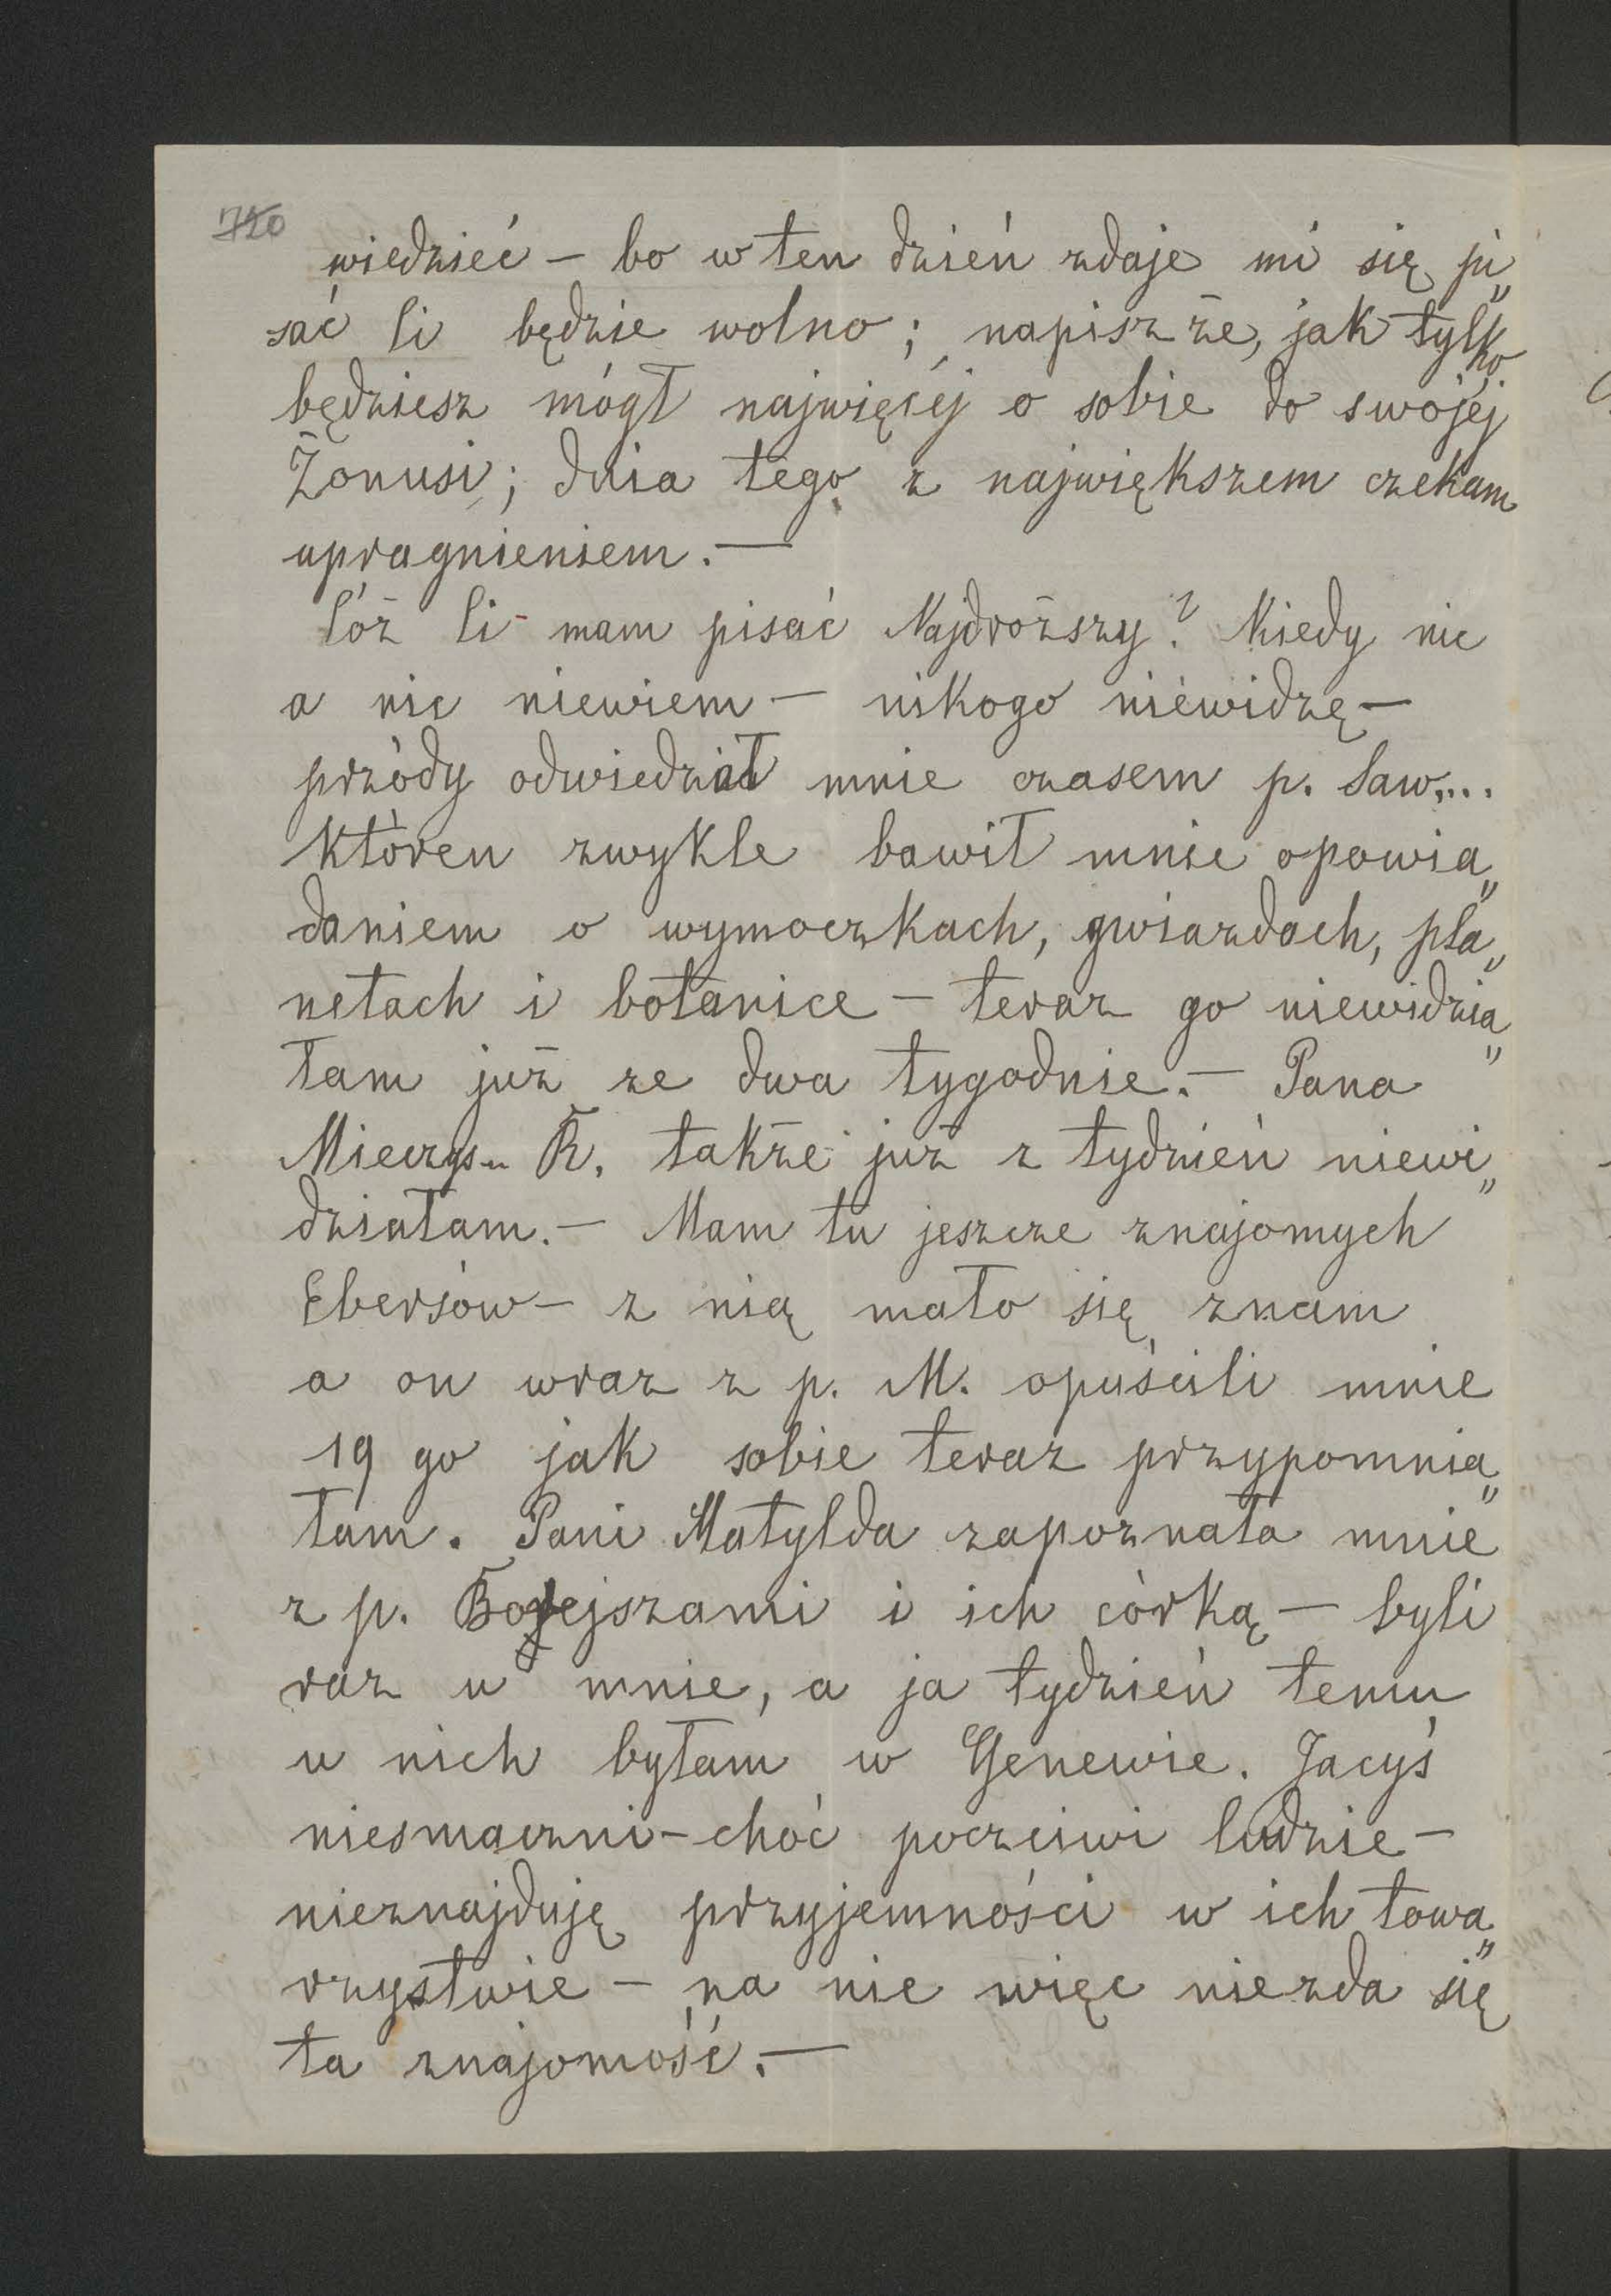 720
wiedzieć – bo w ten dzień zdaje mi się pi„
sać Ci będzie wolno; napisz że, jak tylko
będziesz mógł najwięcéj o sobie do swojéj
Żonusi; dnia tego z największem czekam
upragnieniem. —
Cóż Ci mam pisać Najdroższy? Kiedy nic
a nic niewiem — nikogo niewidzę —
przódy odwiedzał mnie czasem p. Saw....
któren zwykle bawił mnie opowia„
daniem o wymoczkach, gwiazdach, pla„
netach i botanice — teraz go niewidzia„
łam już ze dwa tygodnie. — Pana
Mieczys. R. także już z tydzień niewi„
działam. — Mam tu jeszcze znajomych
Ebersów — z nią mało się znam
a on wraz z p. M. opuścili mnie
19 go jak sobie teraz przypomnia„
łam. Pani Matylda zapoznała mnie
z p. Borejszami i ich córką — byli
raz u mnie, a ja tydzień temu
u nich byłam w Genewie. Jacyś
niesmaczni – choć poczciwi ludzie –
nieznajduję przyjemności w ich towa„
rzystwie – na nic więc niezda się
ta znajomość. —